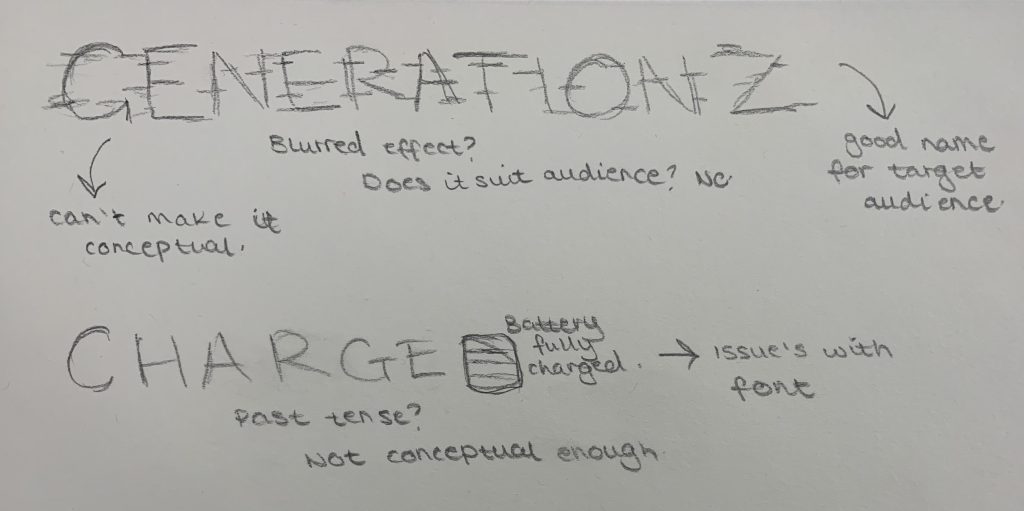 GENERATIONZ
Blurred effect?
Does it suit audience? No.
can't make it
conceptual.
good name
for target
audience.
CHARGE
Battery
fully
charged.
Issue's with
font
past tense?
Not conceptual enough.